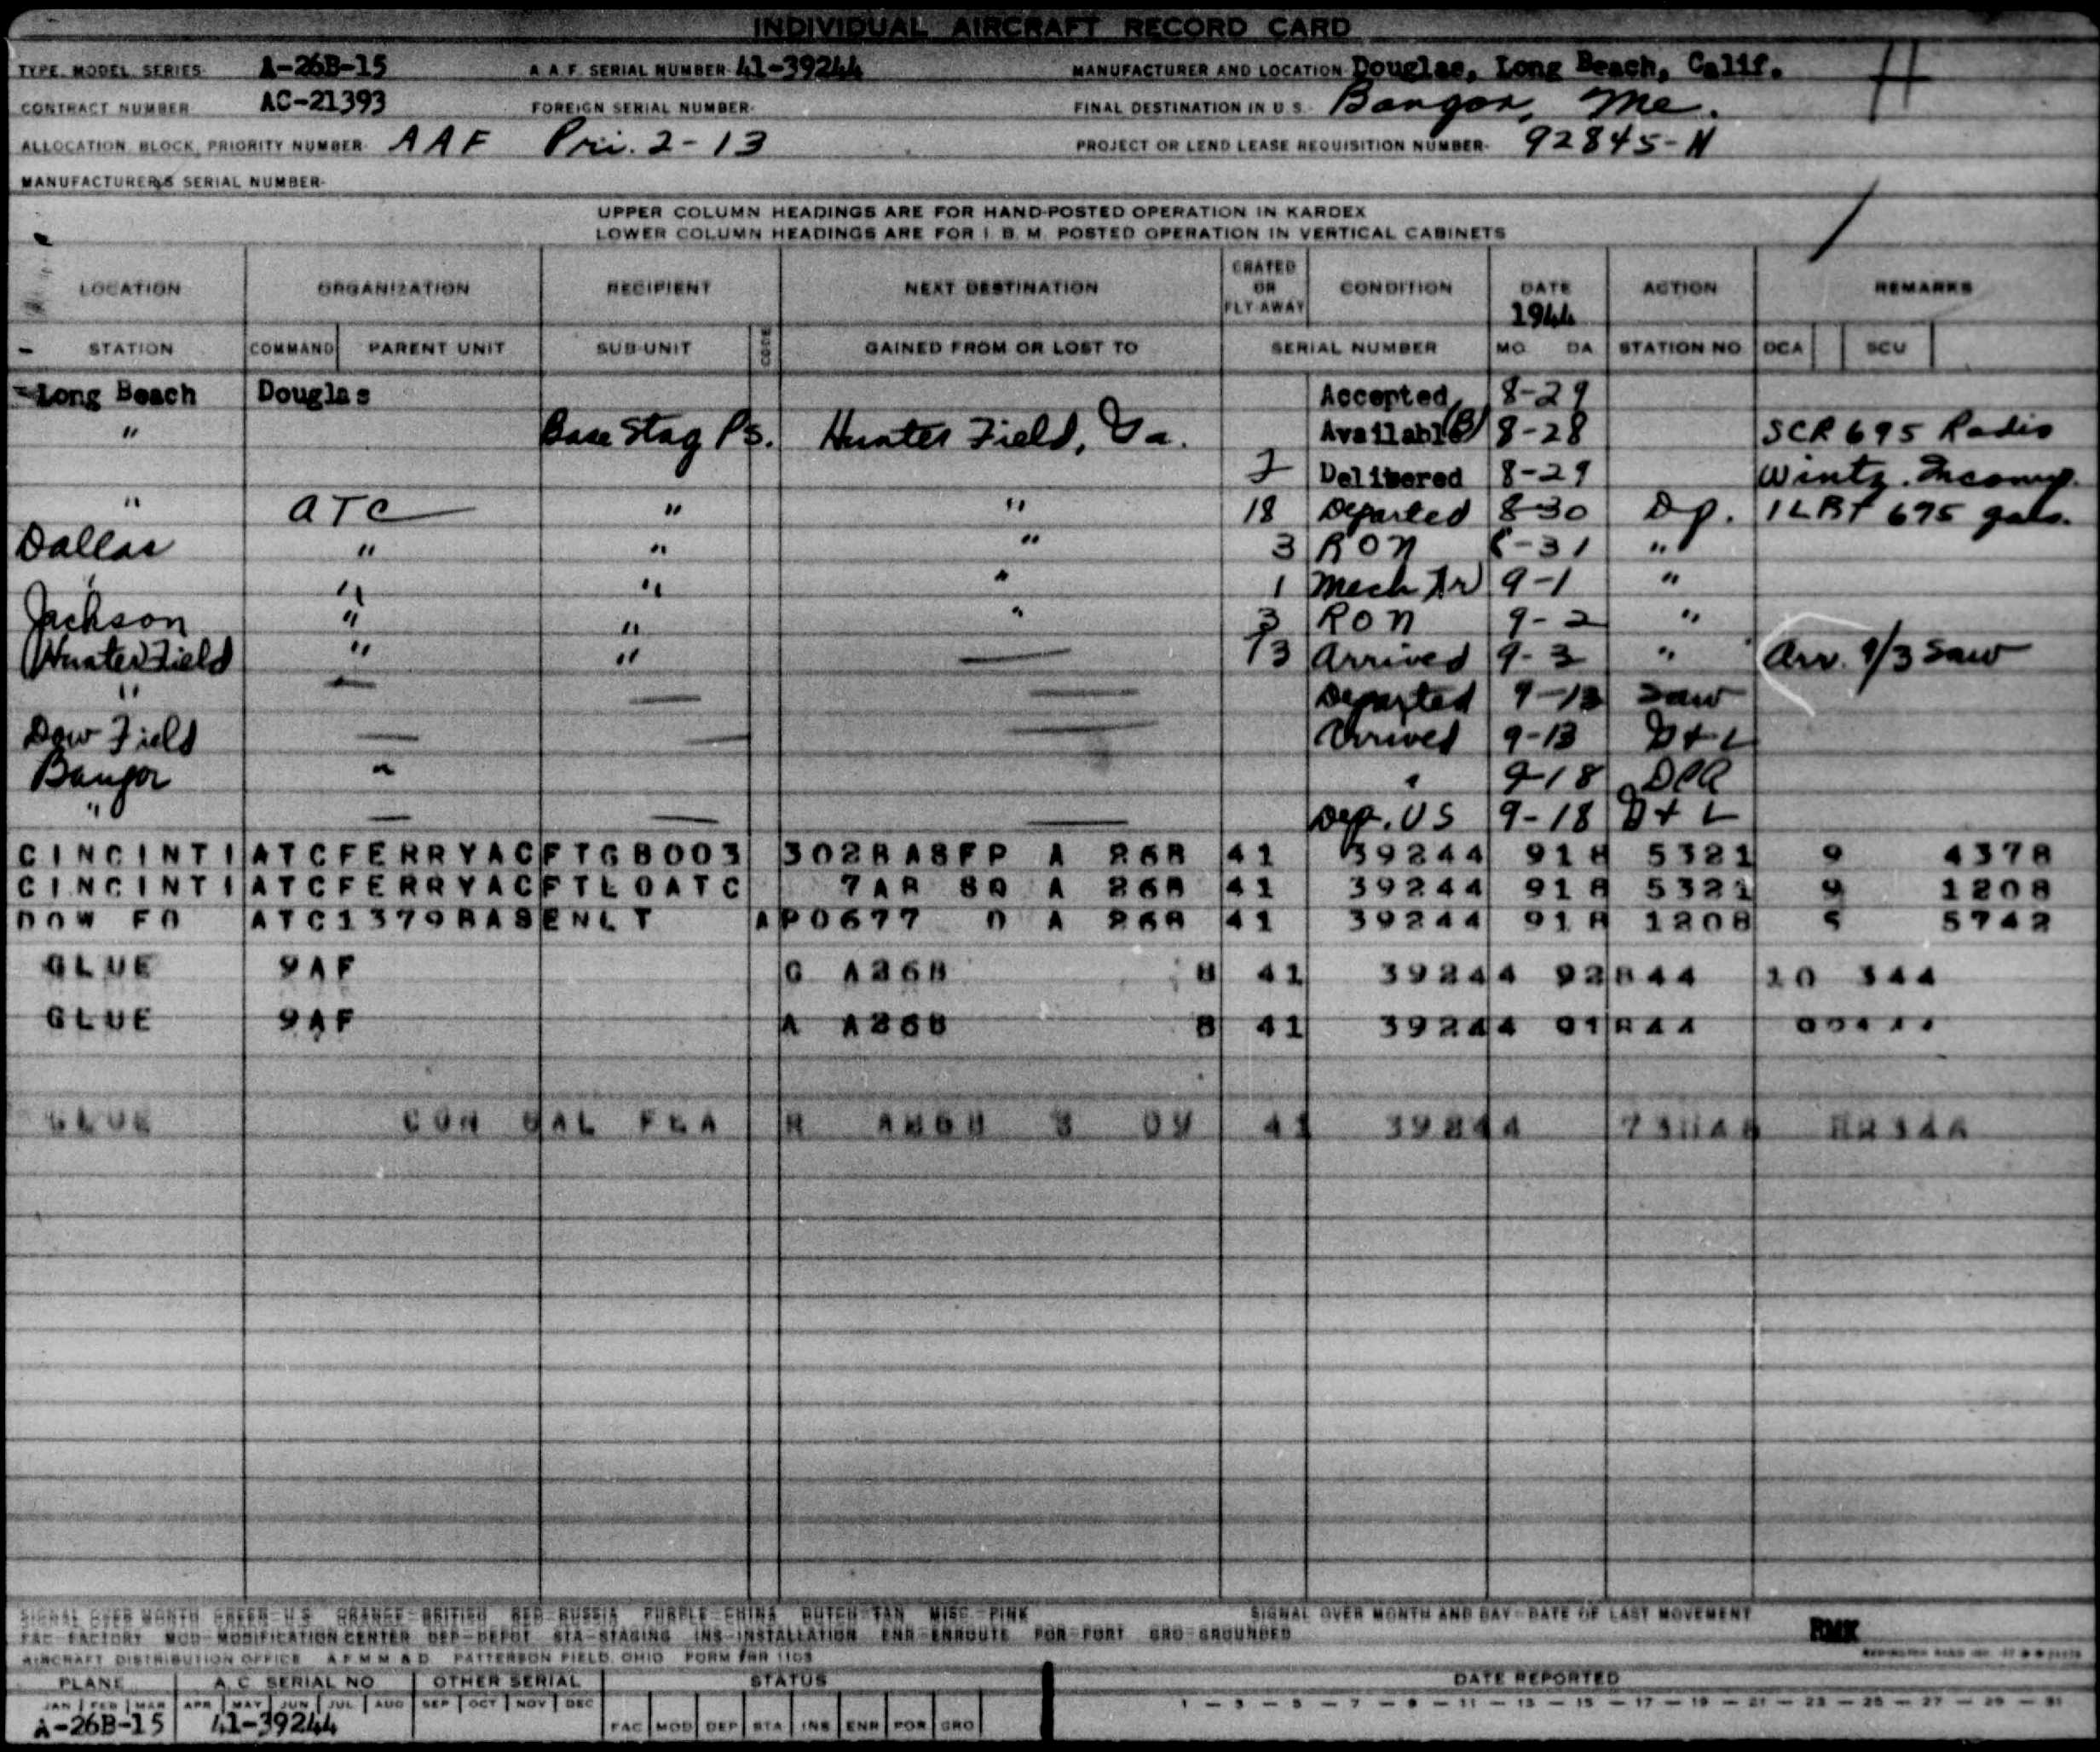 INDIVIDUAL AIRCRAFT RECORD CARD
TYPE, MODEL, SERIES- A-26B-15 A.A.F. SERIAL NUMBER- 41-39244 MANUFACTURER AND LOCATION- Douglas, Long Beach, Calif. H
CONTRACT NUMBER- AC-21393 FOREIGN SERIAL NUMBER- FINAL DESTINATION IN U.S.- Bangor, Me.
ALLOCATION, BLOCK, PRIORITY NUMBER- AAF Pri. 2-13 PROJECT OR LEND LEASE REQUISITION NUMBER- 92845-N
MANUFACTURER'S SERIAL NUMBER-
UPPER COLUMN HEADINGS ARE FOR HAND-POSTED OPERATION IN KARDEX
LOWER COLUMN HEADINGS ARE FOR I. B. M. POSTED OPERATION IN VERTICAL CABINETS
LOCATION ORGANIZATION RECIPIENT NEXT DESTINATION CRATED OR FLY-AWAY CONDITION DATE 1944 ACTION REMARKS
STATION COMMAND PARENT UNIT SUB-UNIT CODE GAINED FROM OR LOST TO SERIAL NUMBER MO. DA. STATION NO. DCA SCU
Long Beach Douglas Accepted 8-29
" Base Stag Ps. Hunter Field, Ga. Available (B) 8-28 SCR 695 Radio
2 Delivered 8-29 Wintz. Incomp.
" ATC " " 18 Departed 8-30 Dp. 1LBT 675 gals.
Dallas " " " 3 RON 8-31 "
" " " 1 Mech Tr 9-1 "
Jackson " " " 3 RON 9-2 "
Hunter Field " " — 13 Arrived 9-3 " Arr. 9/3 Saw
" — — — Departed 9-13 Saw
Dow Field — — — Arrived 9-13 D+L
Bangor " " 9-18 DPR
" — — — Dep. US 9-18 D+L
CINCINTI ATCFERRYACFTGB003 302BASFP A 26B 41 39244 918 5321 9 4378
CINCINTI ATCFERRYACFTLOATC 7AR SQ A 26B 41 39244 918 5321 9 1208
DOW FD ATC1379BASENLT APO677 D A 26B 41 39244 918 1208 5 5742
GLUE 9AF G A26B B 41 39244 92844 10 344
GLUE 9AF A A26B B 41 39244 91844
GLUE CON SAL FEA R A26B 41 39244
SIGNAL OVER MONTH GREEN-U.S. ORANGE-BRITISH RED-RUSSIA PURPLE-CHINA DUTCH-TAN MISC.-PINK SIGNAL OVER MONTH AND DAY-DATE OF LAST MOVEMENT
FAC-FACTORY MOD-MODIFICATION CENTER DEP-DEPOT STA-STAGING INS-INSTALLATION ENR-ENROUTE POR-PORT GRO-GROUNDED RMK
AIRCRAFT DISTRIBUTION OFFICE A.F.M.M.& D. PATTERSON FIELD, OHIO FORM 1103
PLANE A.C. SERIAL NO. OTHER SERIAL STATUS DATE REPORTED
JAN FEB MAR APR MAY JUN JUL AUG SEP OCT NOV DEC 1 — 3 — 5 — 7 — 9 — 11 — 13 — 15 — 17 — 19 — 21 — 23 — 25 — 27 — 29 — 31
A-26B-15 41-39244 FAC MOD DEP STA INS ENR POR GRO